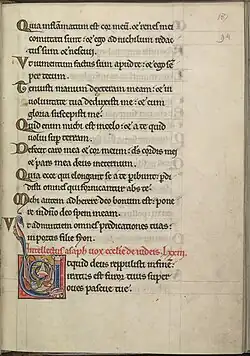 Quia inflammatum est cor meum: et renes mei
comutati sunt: et ego ad nichilum redac
tus sum et nesciui.
Vt iumentum factus sum apud te: et ego semper tecum.
Tenuisti manum dexteram meam: et in
uoluntate tua deduxisti me: et cum
gloria suscepisti me.
Quid enim michi est in celo: et a te quid
uolui sup terram.
Defecit caro mea et cor meum: deus cordis mei
et pars mea deus in eternum.
Quia ecce qui elongant se a te peribunt: per
didisti omnes qui fornicantur abs te.
Michi autem adherere deo bonum est: pone
re in dño deo spem meam.
Vt adnuntiem omnes predicationes tuas:
in portis filie syon.
Intellectus asaph uox ecclie de iudeis. LXXIII.
Vt quid deus reppulisti in finem:
iratus est furor tuus super
oues pascue tue.